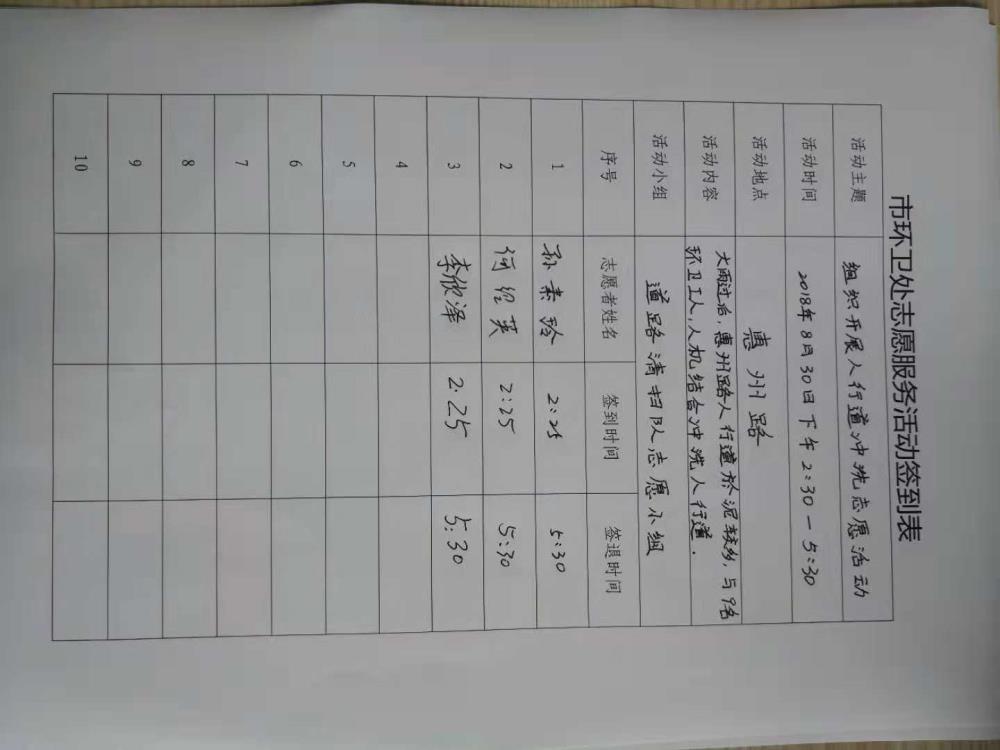 市环卫处志愿服务活动签到表
活动主题 组织开展人行道冲洗志愿活动
活动时间 2018年8月30日下午2:30—5:30
活动地点 惠州路
活动内容 大雨过后,惠州路人行道於泥较多,与9名
环卫工人,人机结合冲洗人行道.
活动小组 道路清扫队志愿小组
序号 志愿者姓名 签到时间 签退时间
1 孙素玲 2:25 5:30
2 何绍英 2:25 5:30
3 李欣泽 2.25 5:30
4
5
6
7
8
9
10